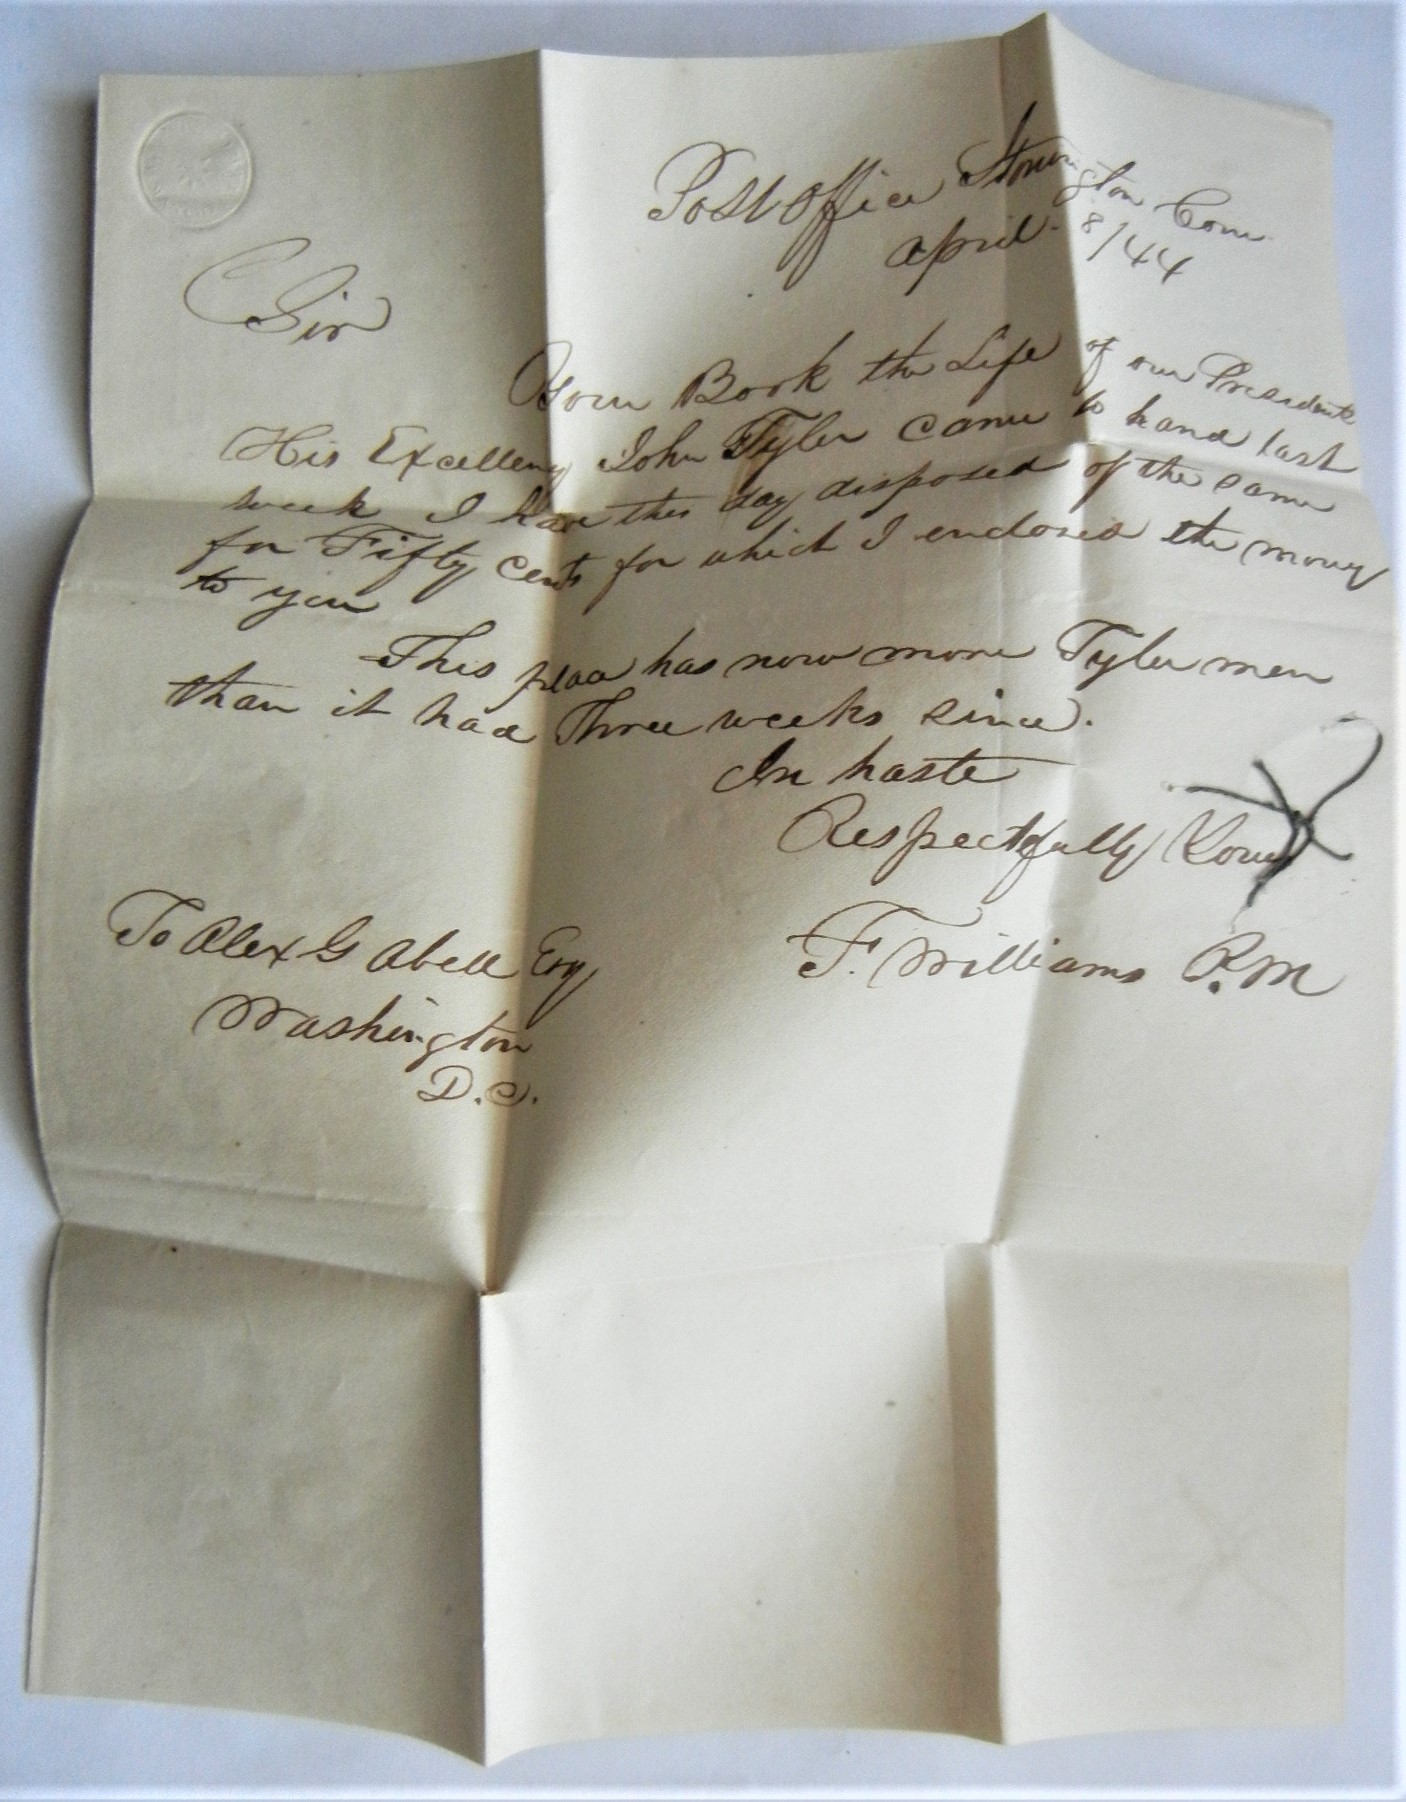 Post Office Stonington Conn
April 8/44
Sir
Your Book the Life of our President
His Excellency John Tyler came to hand last
week I have this day disposed of the same
for Fifty cents for which I enclosed the money
to you
This place has now more Tyler men
than it had Three weeks since.
In haste
Respectfully Yours
F. Williams P.M
To Alex G Abell Esq
Washington
D.C.